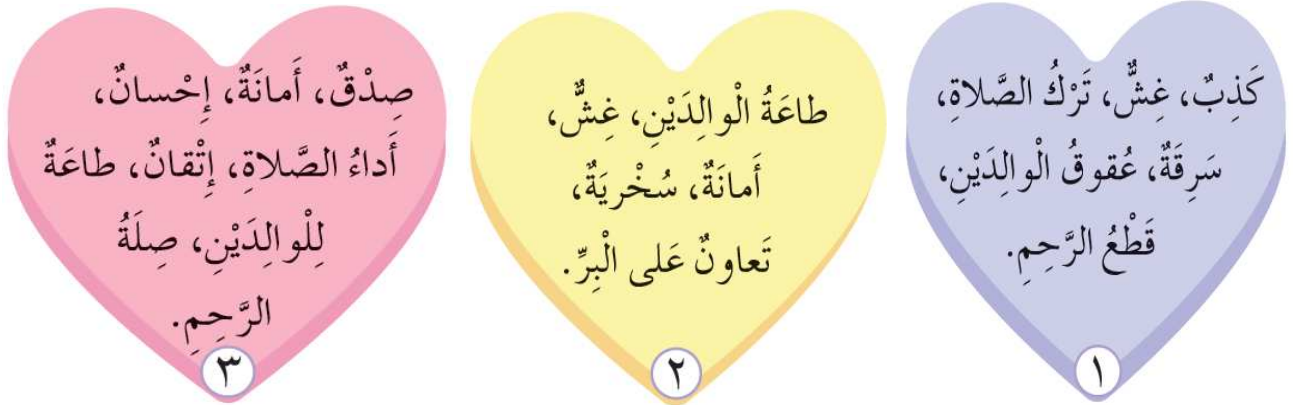 كَذِبٌ، غِشٌّ، تَرْكُ الصَّلاةِ،
سَرِقَةٌ، عُقوقُ الْوالِدَيْنِ،
قَطْعُ الرَّحِمِ.
١
طاعَةُ الْوالِدَيْنِ، غِشٌّ،
أَمانَةٌ، سُخْريَةٌ،
تَعاونٌ عَلى الْبِرِّ.
٢
صِدْقٌ، أَمانَةٌ، إِحْسانٌ،
أَداءُ الصَّلاةِ، إِتْقانٌ، طاعَةٌ
لِلْوالِدَيْنِ، صِلَةُ
الرَّحِمِ.
٣